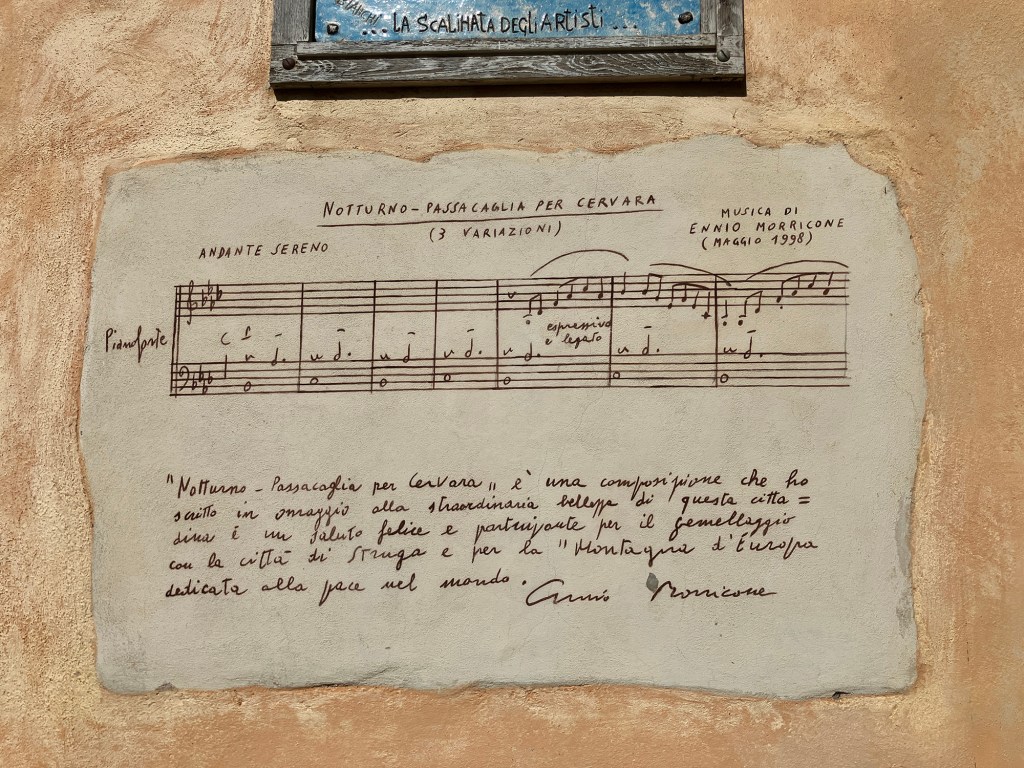 ... LA SCALINATA DEGLI ARTISTI ...
NOTTURNO - PASSACAGLIA PER CERVARA
(3 VARIAZIONI)
MUSICA DI
ENNIO MORRICONE
(MAGGIO 1998)
ANDANTE SERENO
Pianoforte
espressivo
e legato
"Notturno - Passacaglia per Cervara" è una composizione che ho
scritto in omaggio alla straordinaria bellezza di questa citta=
dina È un saluto felice e partecipante per il gemellaggio
con la città di Struga e per la "Montagna d'Europa
dedicata alla pace nel mondo.
Ennio Morricone